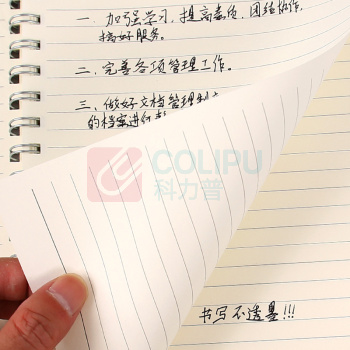 一.加强学习,提高素质,团结协作.
搞好服务。
二.完善各项管理工作。
三.做好文档管理制
的档案进行
COLIPU
科力普
书写不透墨!!!